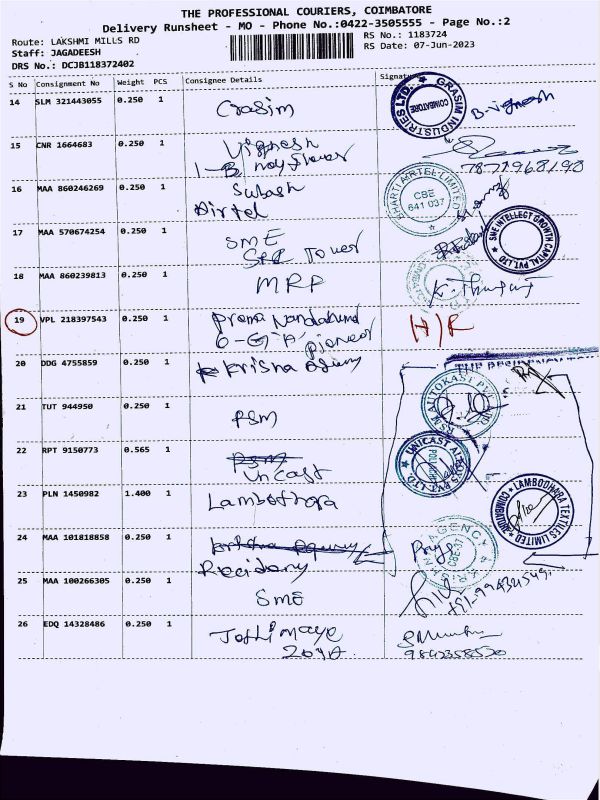 THE PROFESSIONAL COURIERS, COIMBATORE
Delivery Runsheet - MO - Phone No.:0422-3505555 - Page No.:2
Route: LAKSHMI MILLS RD
RS No.: 1183724
Staff: JAGADEESH
RS Date: 07-Jun-2023
DRS No.: DCJB118372402
S No Consignment No Weight PCS Consignee Details Signature
14 SLM 321443055 0.250 1 Grasim
GRASIM INDUSTRIES LTD. COIMBATORE
B. Vignesh
15 CNR 1664683 0.250 1 Vignesh
1-B
16 MAA 860246269 0.250 1 Subash
Airtel
BHARTI AIRTEL LIMITED CBE 641 037
17 MAA 570674254 0.250 1 SME
Tower
SME INTELLECT GROWTH CAPITAL PVT LTD
18 MAA 860239813 0.250 1 MRP
19 VPL 218397543 0.250 1
6-G-'A' Pioneer
H/R
20 DDG 4755859 0.250 1 Krisha
21 TUT 944950 0.250 1 PSM
RSM AUTOKAST PVT. LTD.
22 RPT 9150773 0.565 1 psm
Unicast
UNICAST ALLOYS PVT. LTD.
23 PLN 1450982 1.400 1 Lambothara
LAMBODHARA TEXTILES LIMITED COIMBATORE
24 MAA 101818858 0.250 1
Priya
AGENCY
25 MAA 100266305 0.250 1 SME
26 EDQ 14328486 0.250 1 Jothimaye
9842358520